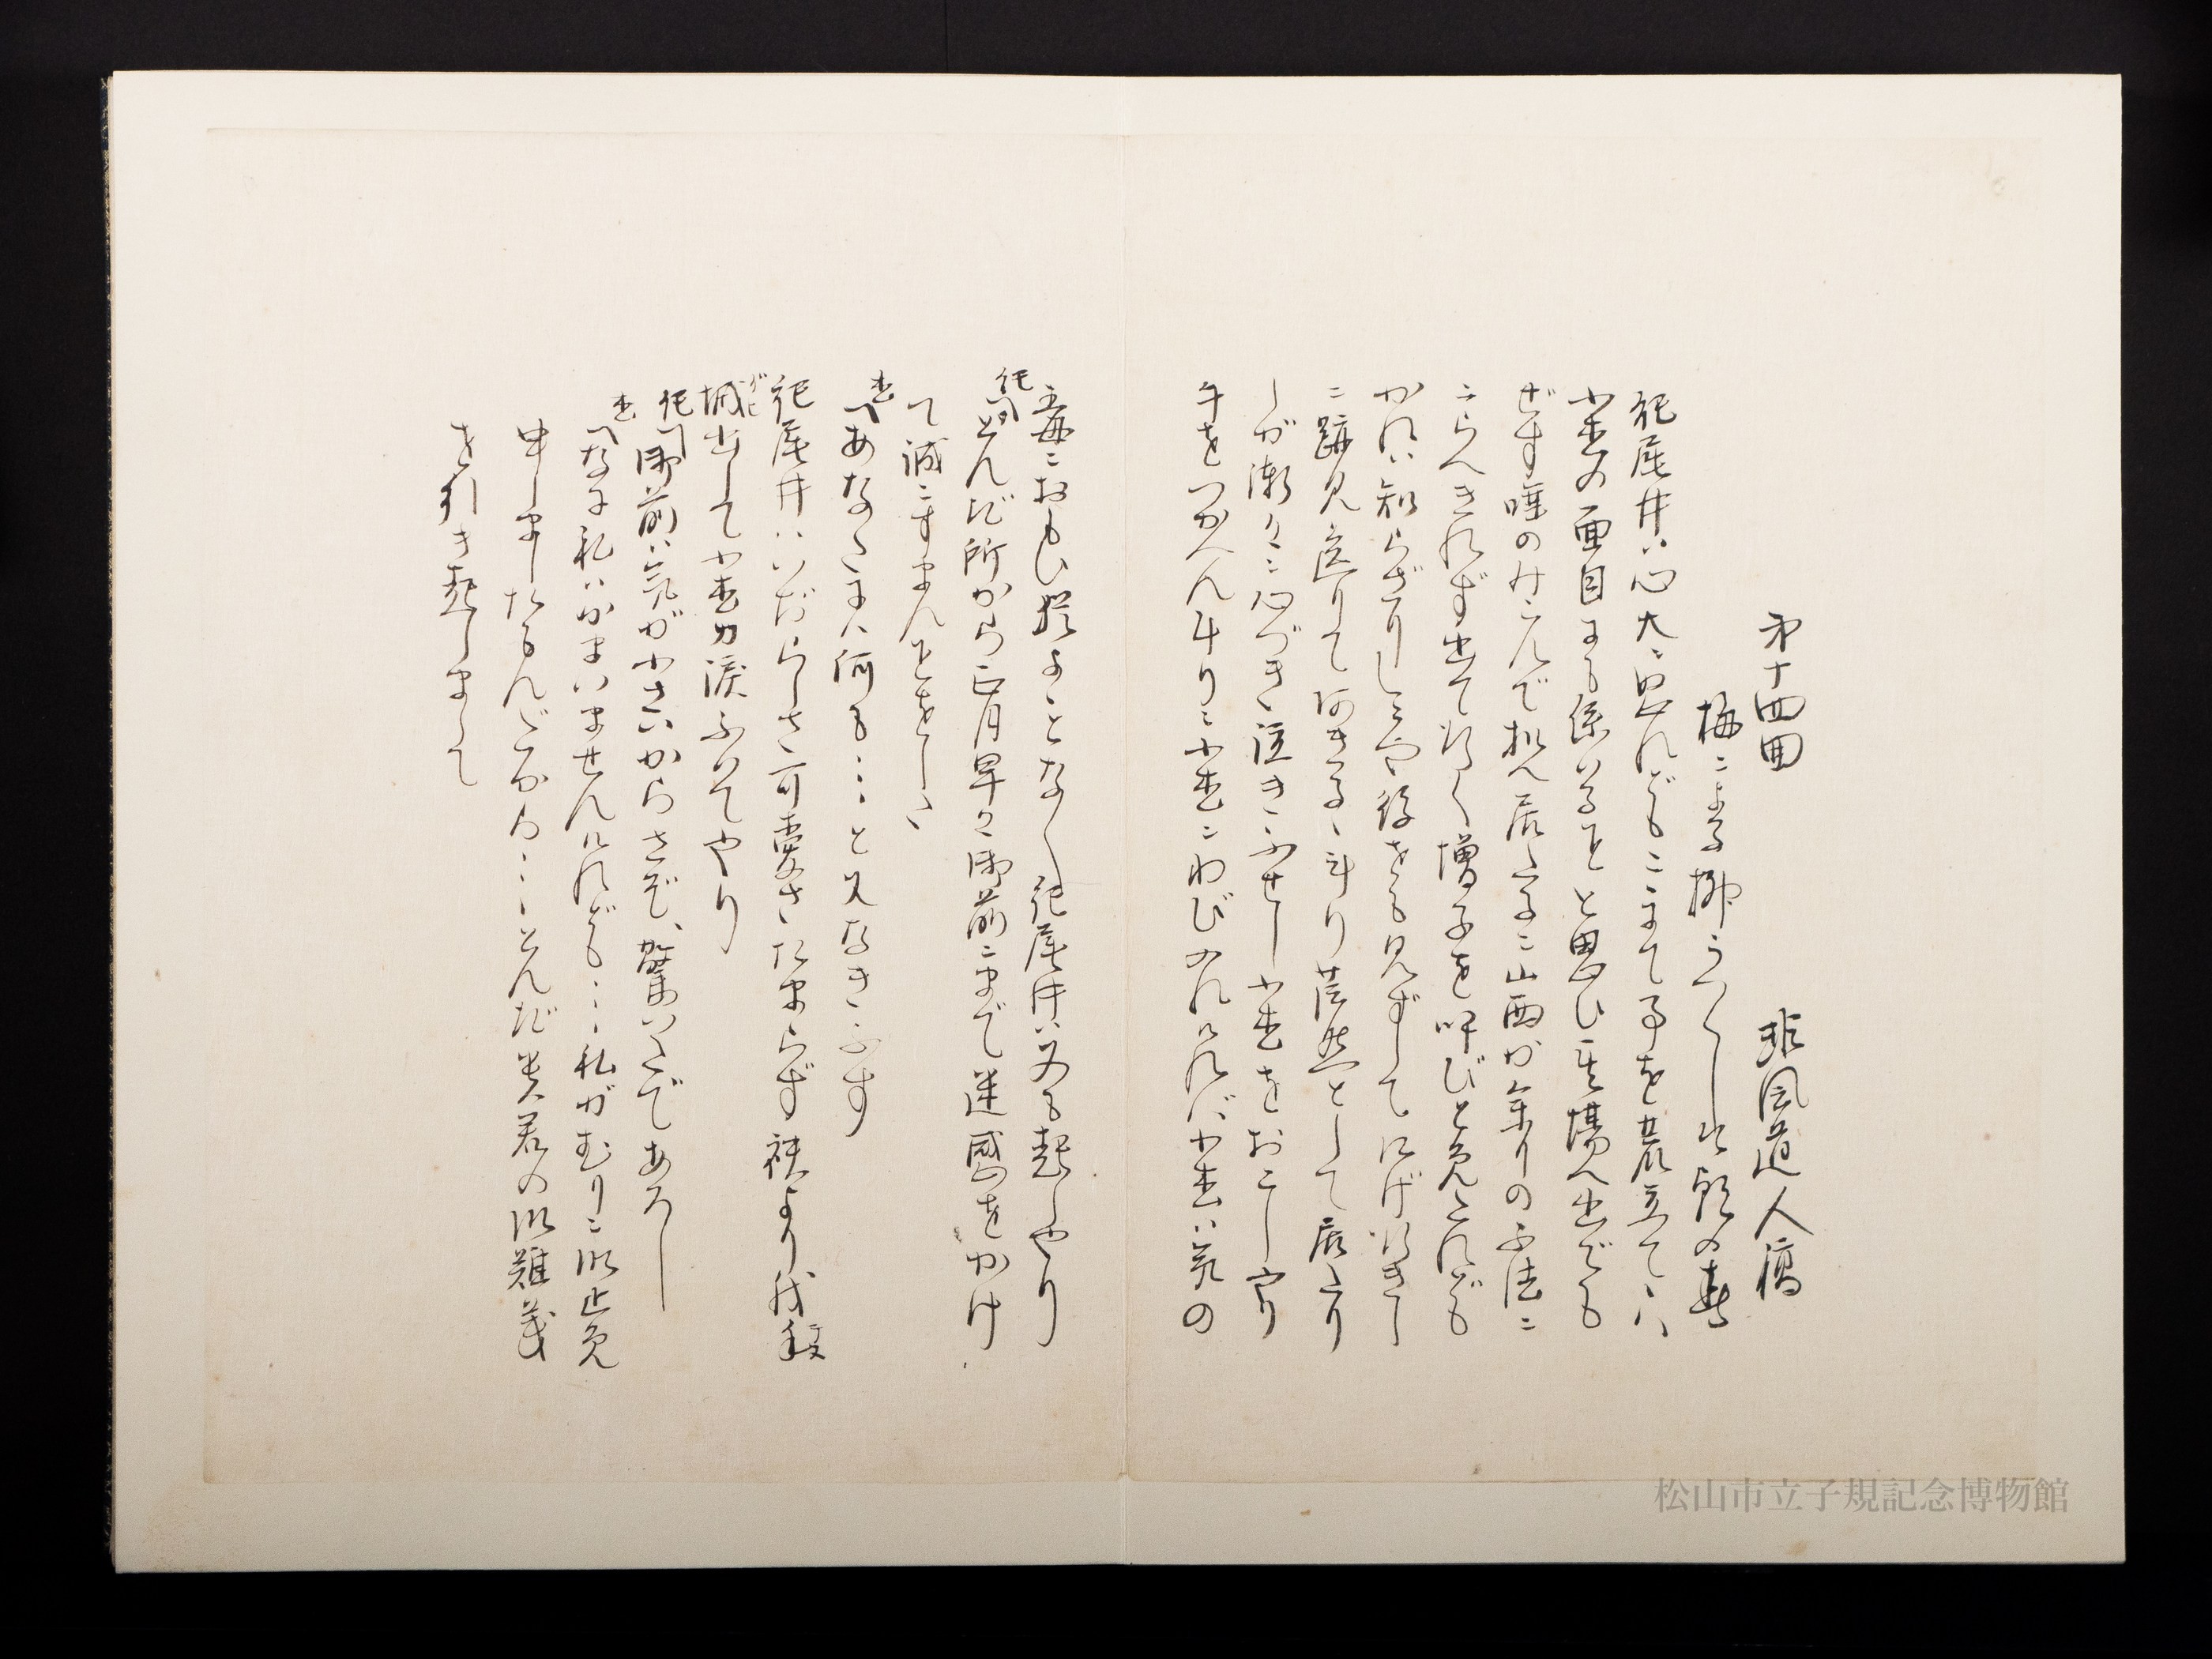 第十四回　非風道人稿
梅によする柳うつくしき朝の春
紀尾井ハ心大に思れどもここまて事を荒立てハ
小李の面目にも係ハることと思ひ其場へ出でも
せず唾のみこんで扣へ居たるに山西が余りの不法に
こらへきれず出て行く増子を呼びとめたれども
かれハ知らざりしにや後をも見ずしてにげ行きし
に跡見送りて阿きるる斗り茫然として居たり
しが漸々に心づき泣きふせし小李をおこしやり
手をつかへん斗りに小李にわびのれけれバ小李ハ気の
毒におもひ猶よことなく紀尾井ハ又も起しやり
紀「とんだ所から正月早々御前にまで迷惑をかけ
て誠にすまんことをしし
李「あなたハ何も……と又なきふす
紀尾井ハいぢらしさ可愛さたまらず袂より我手
拭出して小李カ涙ふいてやり
紀「御前ハ気が小さいからさぞ驚いたであろー
李「なに私ハかまいませんけれども……私がむりに御止め
申しましたもんだから……とんだ貴君の御難義
を引き起しまして
松山市立子規記念博物館